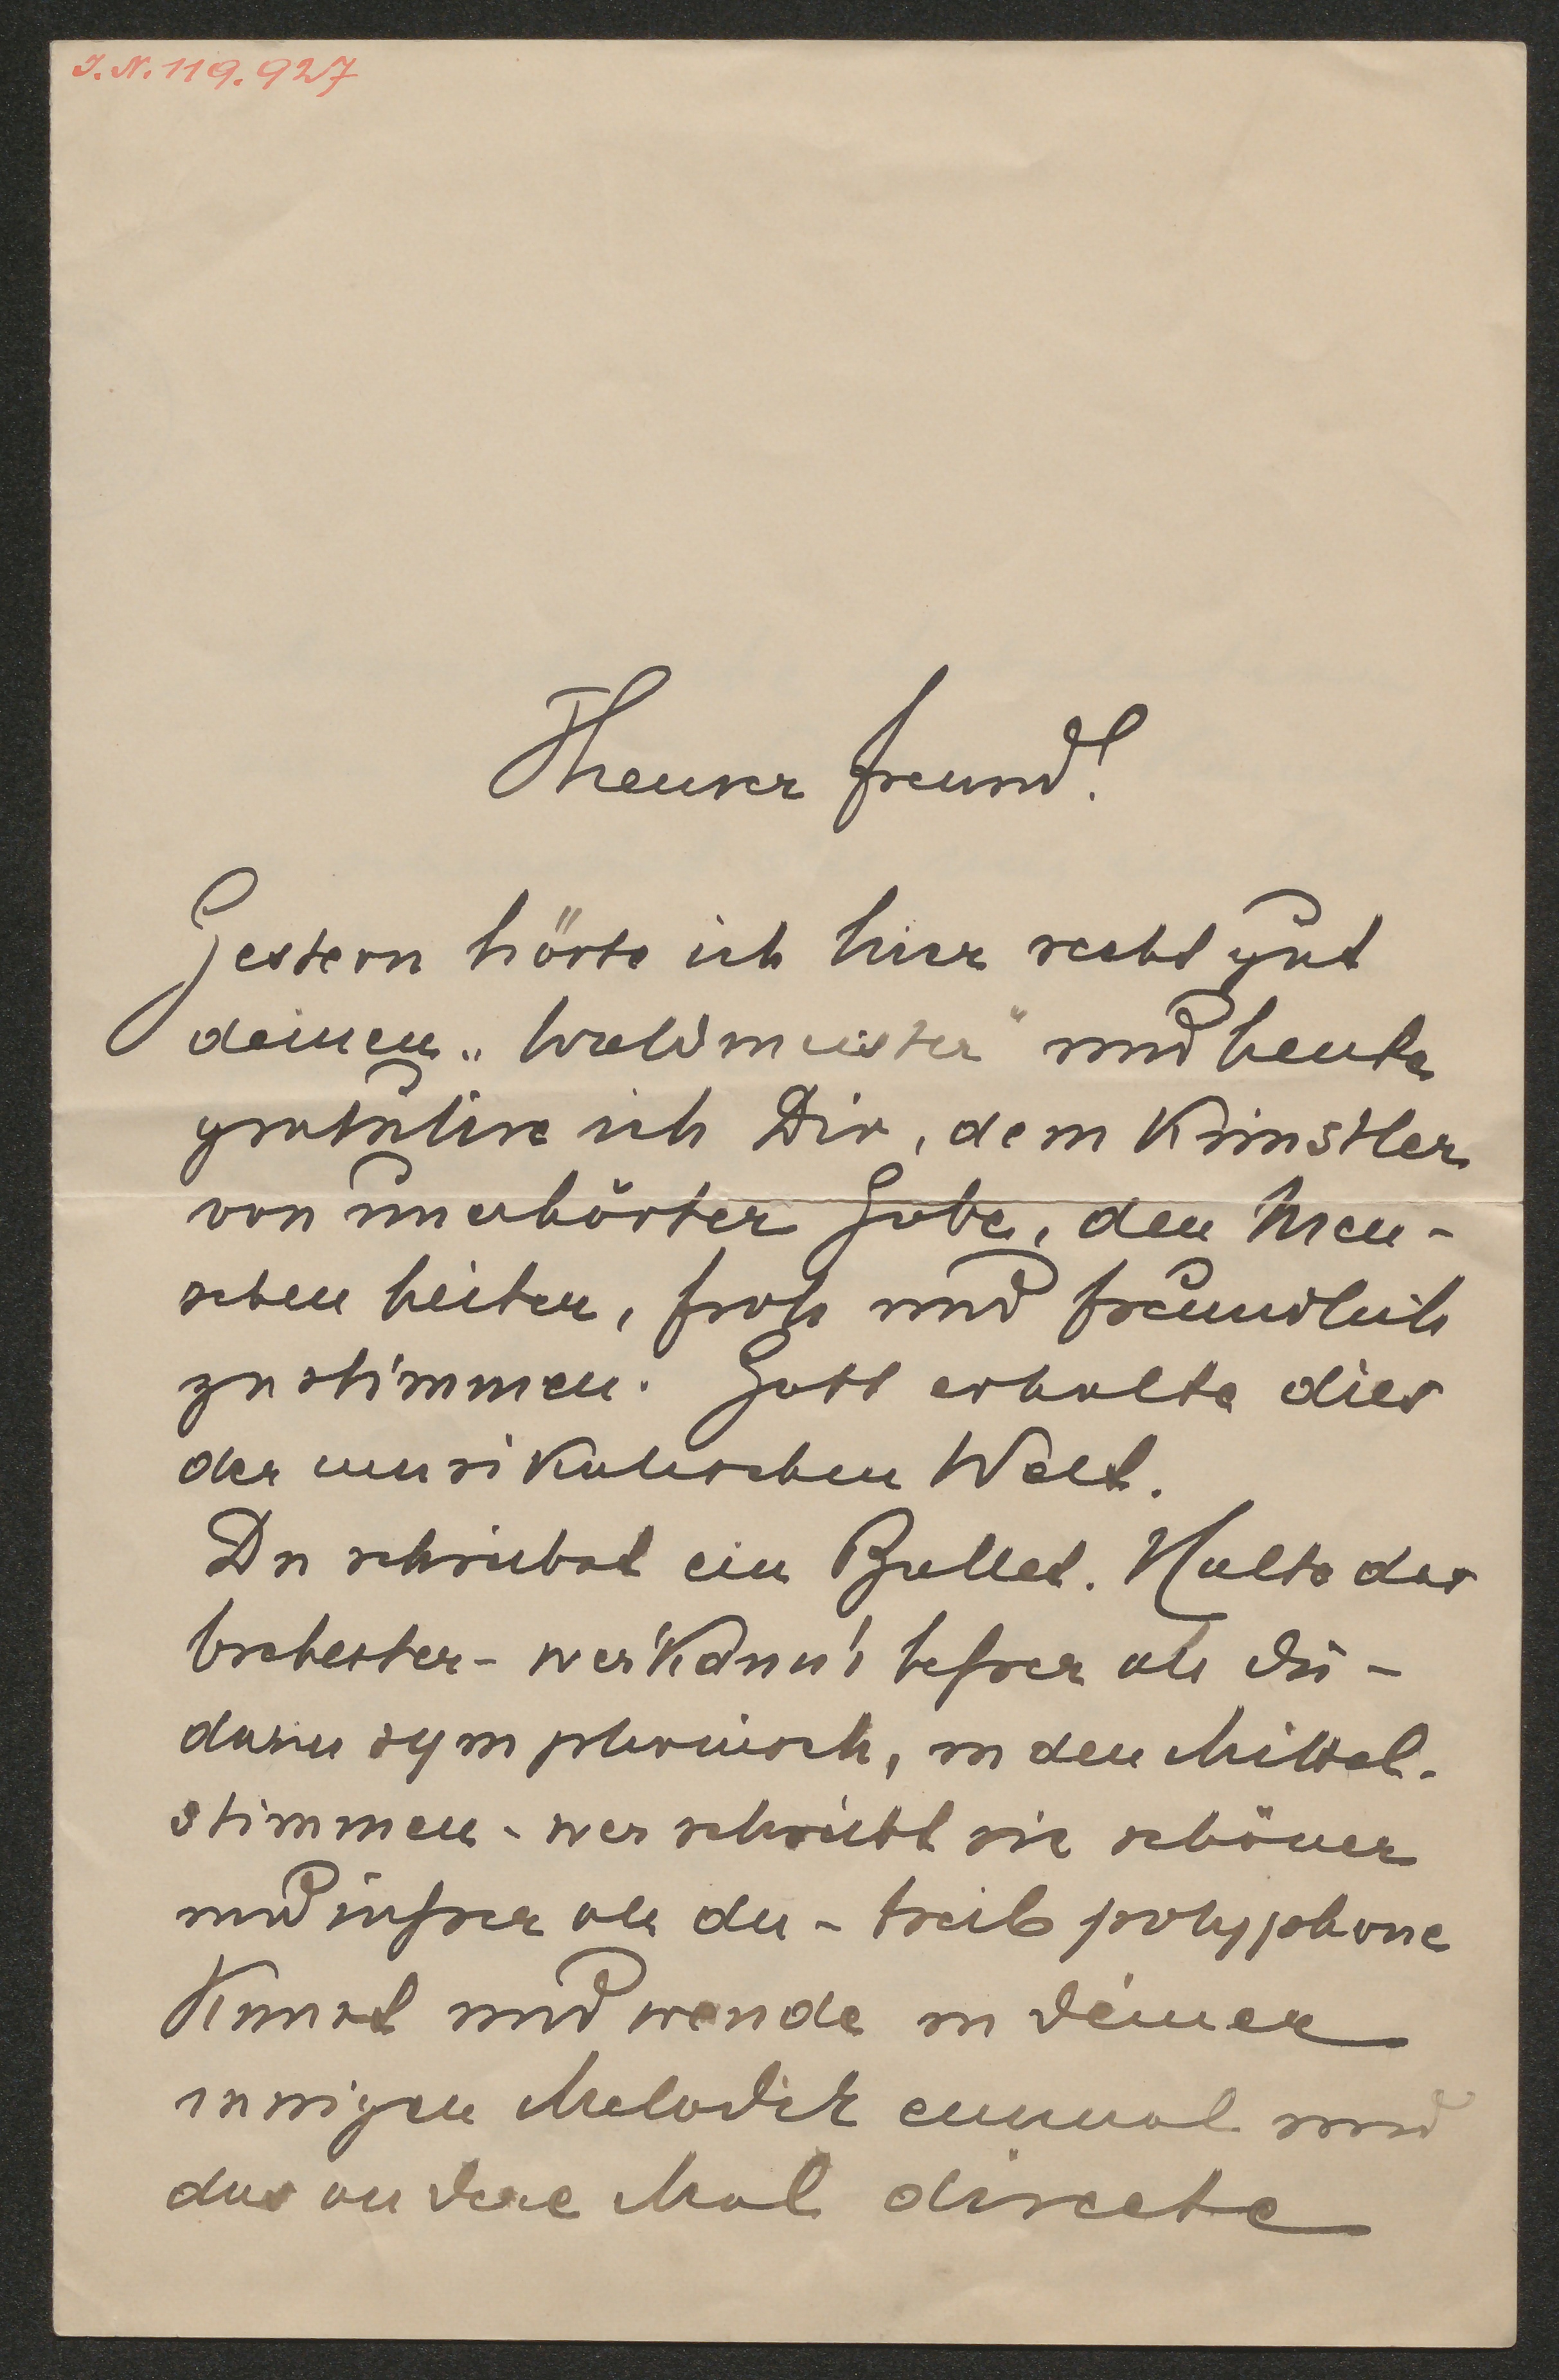 J.N. 119.927
Theurer Freund!
Gestern hörte ich hier recht gut
deinen „Waldmeister" und heute
gratulire ich Dir, dem Künstler
von unerhörter Gabe, den Men-
schen heiter, froh und freundlich
zu stimmen. Gott erhalte dies
der musikalischen Welt.
Du schreibst ein Ballet. Halte das
Orchester - wer kann's besser als Du -
darin symphonisch, in den Mittel-
stimmen - wer schreibt sie schöner
und süsser als du - treib polyphone
Kunst und wende in deiner
innigen Melodik einmal und
das andere Mal directe